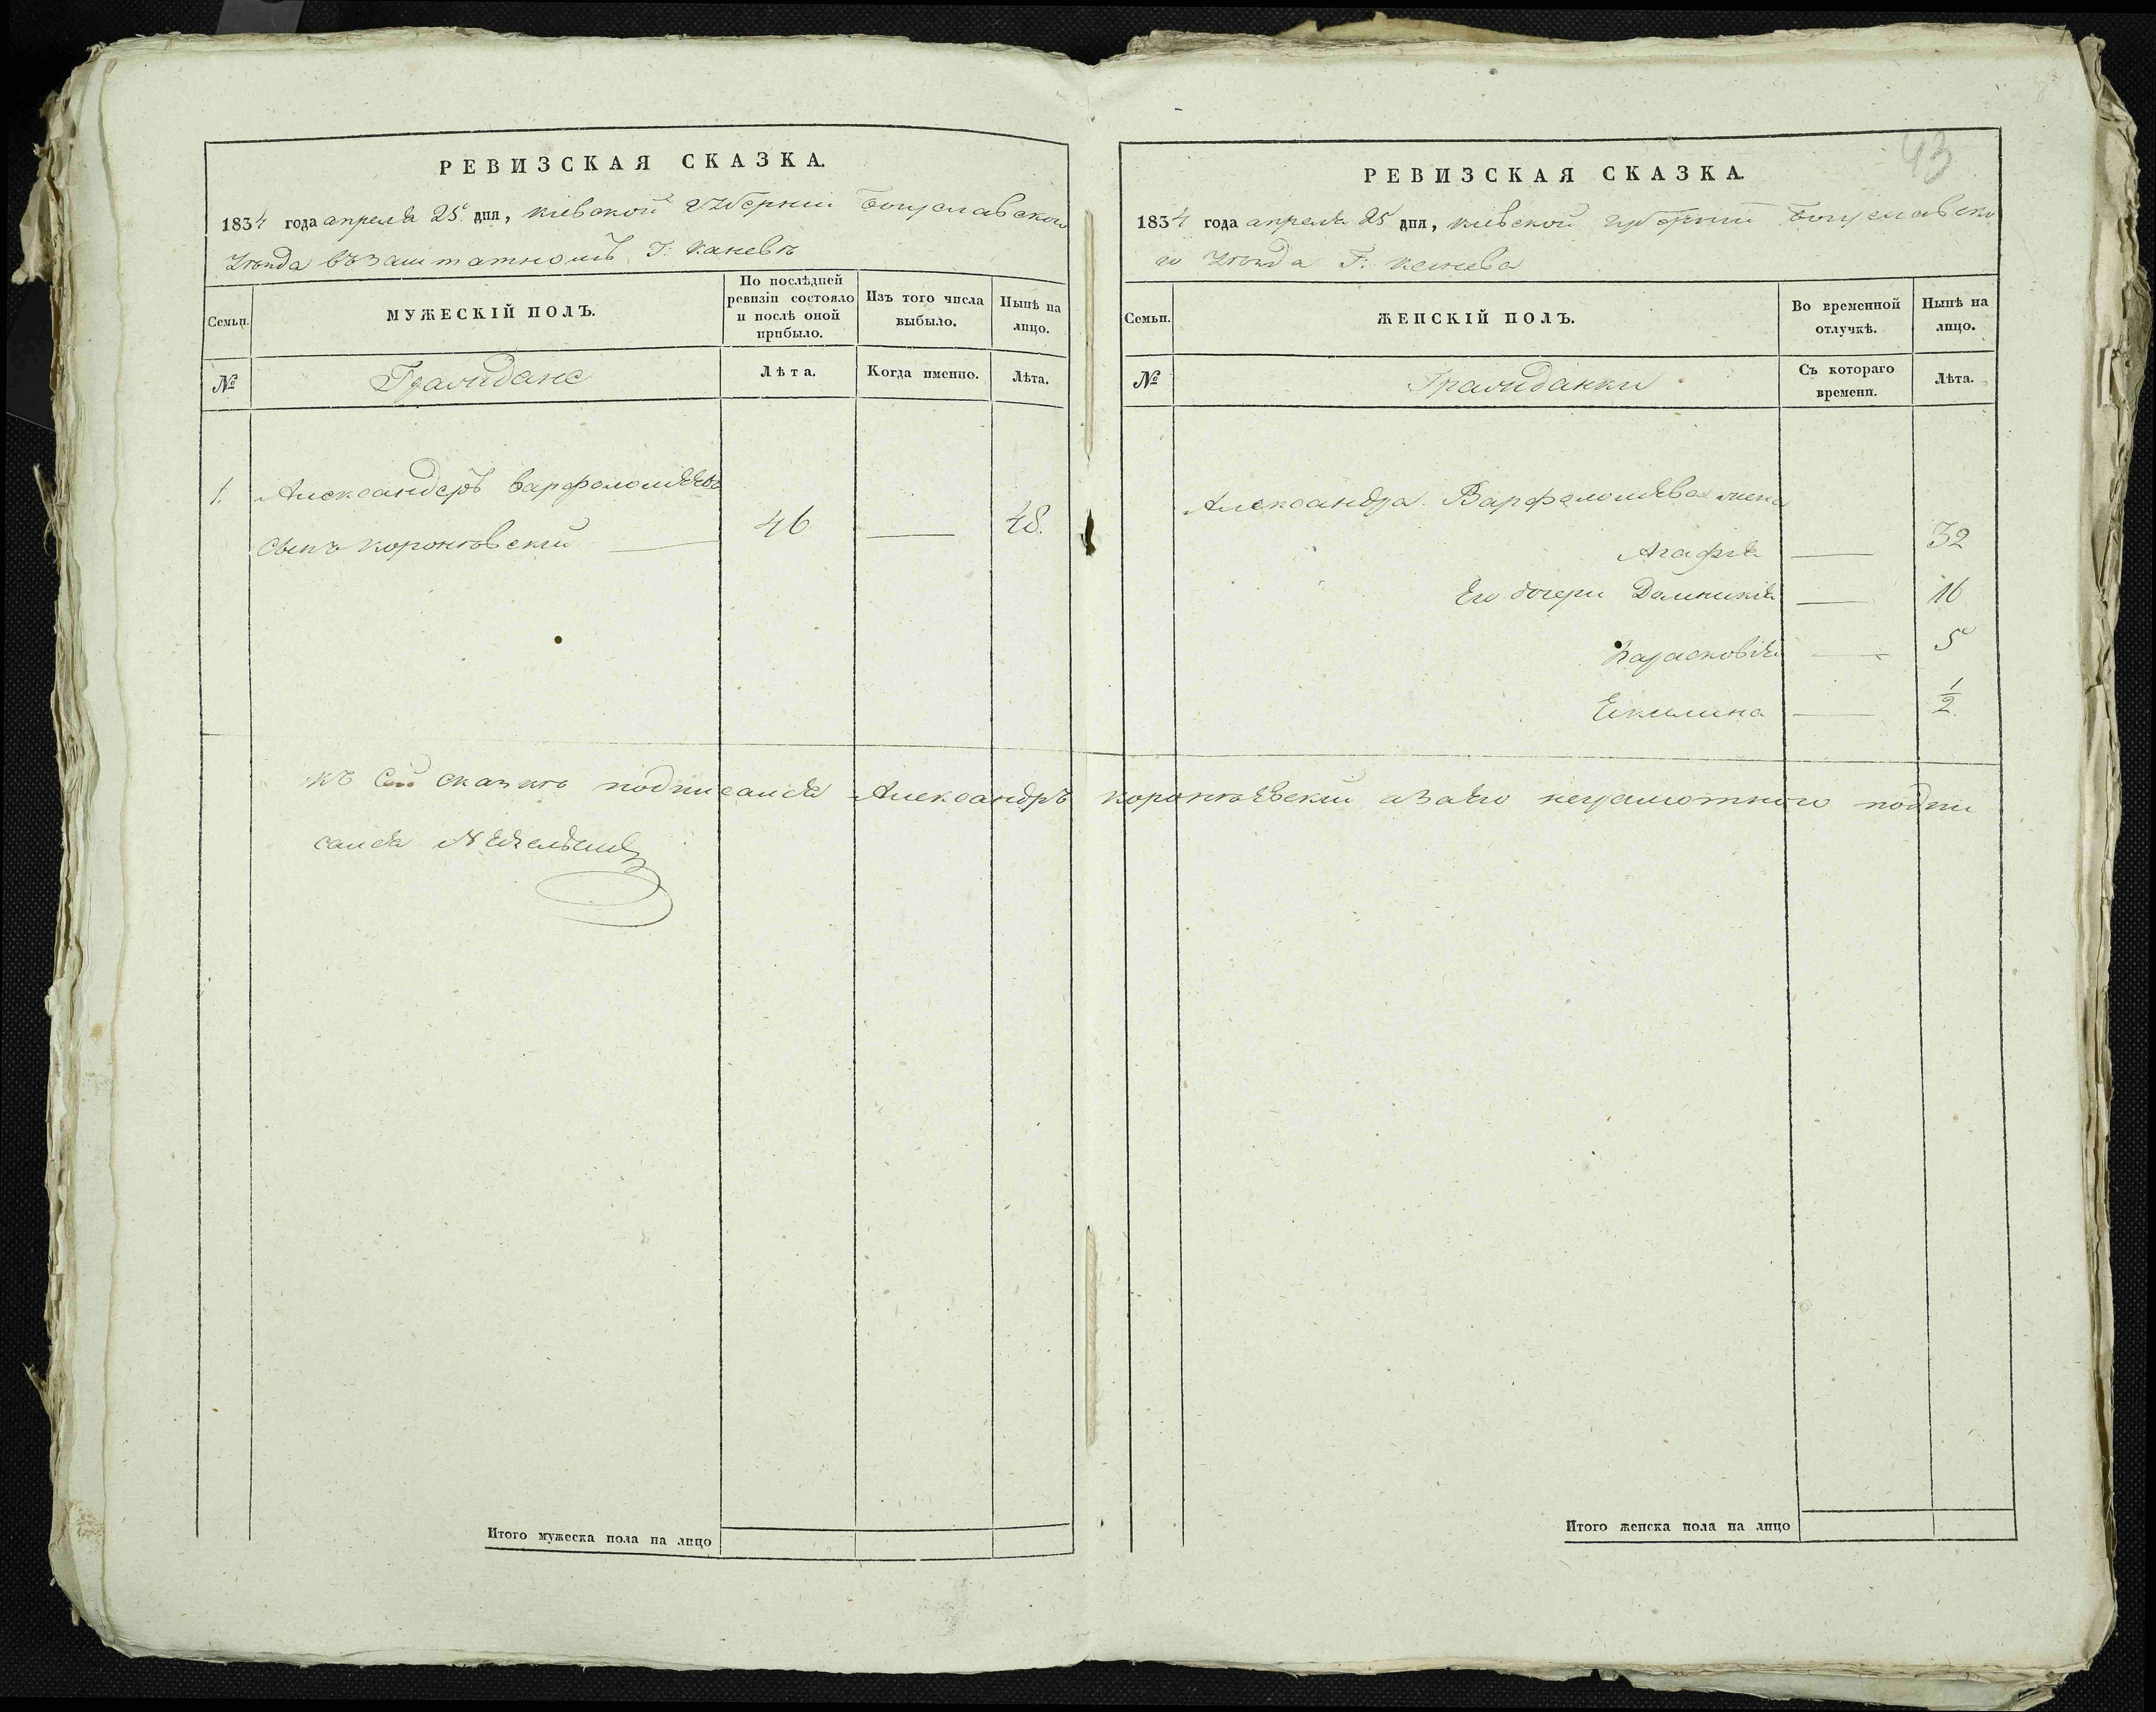 РЕВИЗСКАЯ СКАЗКА.
1834 года апреля 25 дня, Кіевской Губерніи Богуславского
Уезда въ Заштатномъ Г: Каневѣ
Семьи.
МУЖЕСКІЙ ПОЛЪ.
По послѣдней ревизіи состояло и послѣ оной прибыло.
Изъ того числа выбыло.
Нынѣ на лицо.
№
Граждане
Лѣта.
Когда именно.
Лѣта.
1. Александеръ Варфоломѣевъ
сынъ Коронковскій 46 48.
Итого мужеска пола на лицо
43
РЕВИЗСКАЯ СКАЗКА.
1834 года апреля 25 дня, Кіевской Губерніи Богуславско
го Уезда Г: Канева
Семьи.
ЖЕНСКІЙ ПОЛЪ.
Во временной отлучкѣ.
Нынѣ на лицо.
№
Гражданки
Съ котораго времени.
Лѣта.
Александра Варфоломѣева жена
Агафія 32
Его дочери Домникія 16
Парасковія 5
Екилина 1/2
къ сей сказкѣ подписался Александръ а За его неграмотного подпи
сался
Итого женска пола на лицо